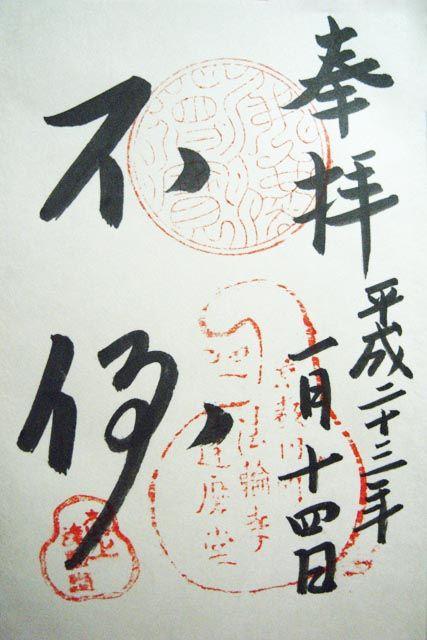 奉拝
平成二十三年
一月十四日
不倒
法輪寺
達磨堂